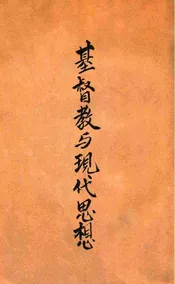 基督教与現代思想